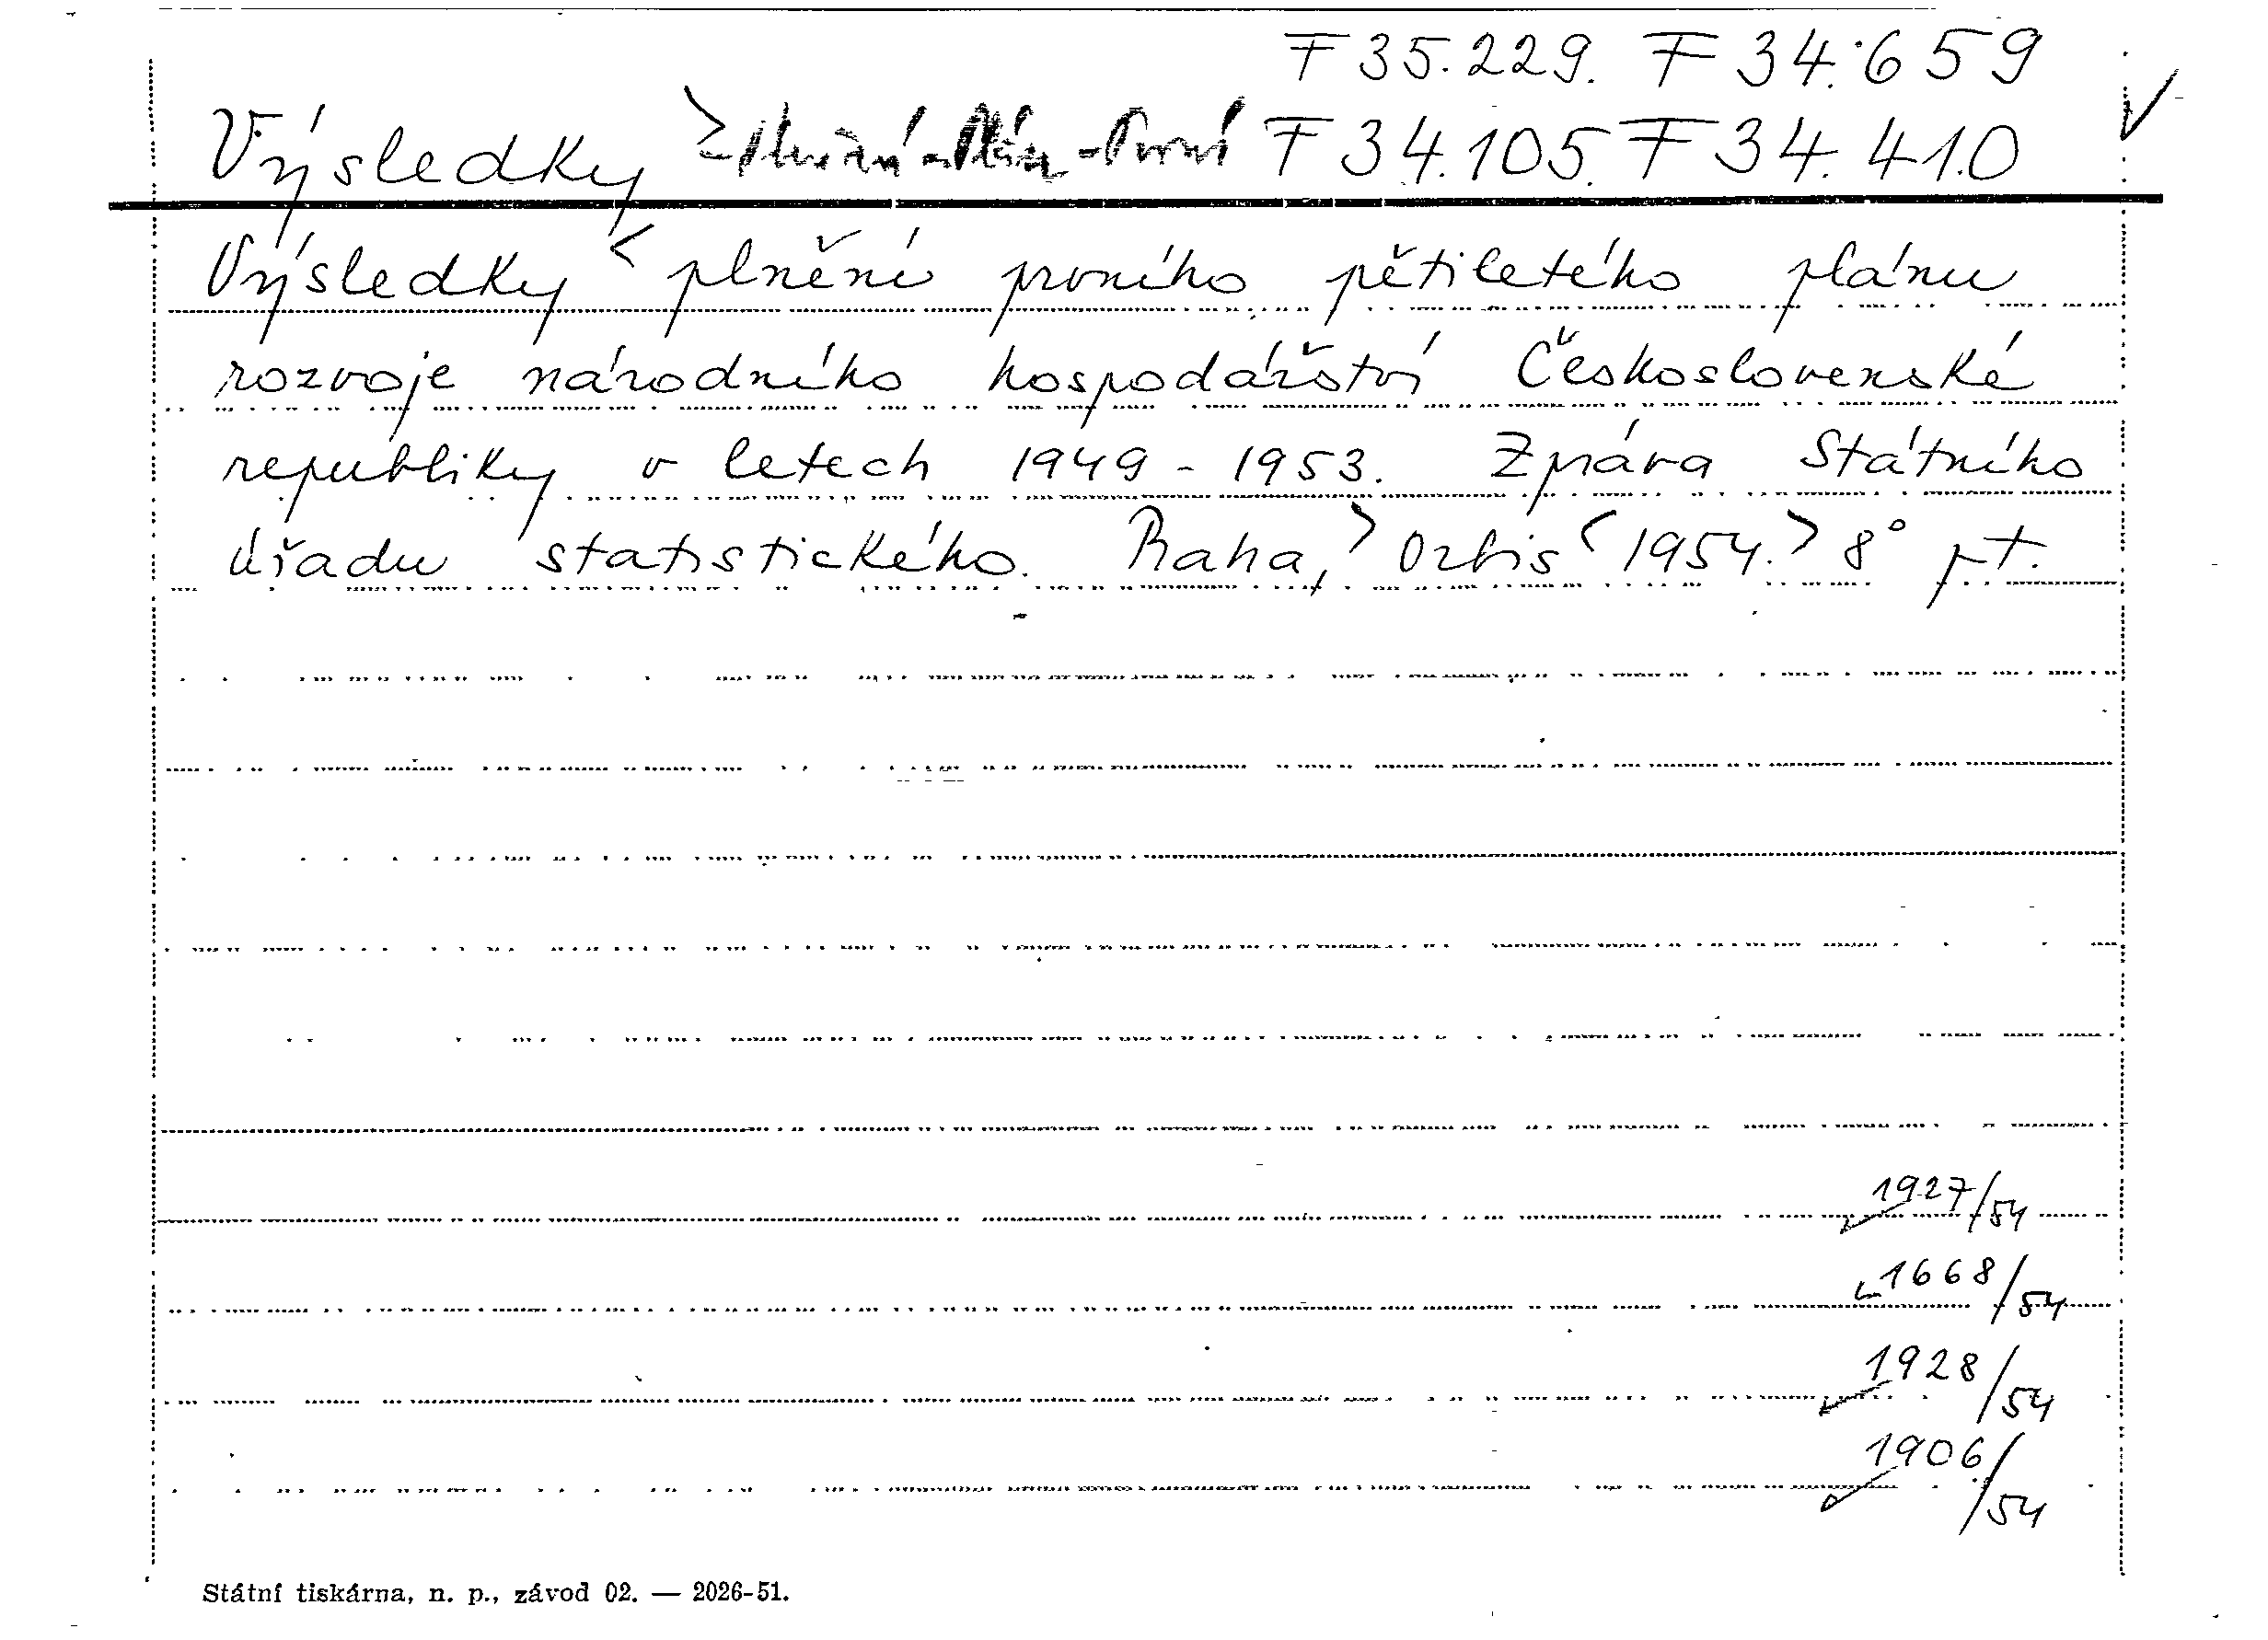 F 35.229. F 34.659
Výsledky > - Plnění - Plán - První F 34.105. F 34.410
Výsledky < plnění prvního pětiletého plánu
rozvoje národního hospodářství Československé
republiky v letech 1949 - 1953. Zpráva Státního
úřadu statistického. Praha, > Orbis < 1954. > 8° pt.
1927/54
1668/54
1928/54
1906/54
Státní tiskárna, n. p., závod 02. — 2026-51.